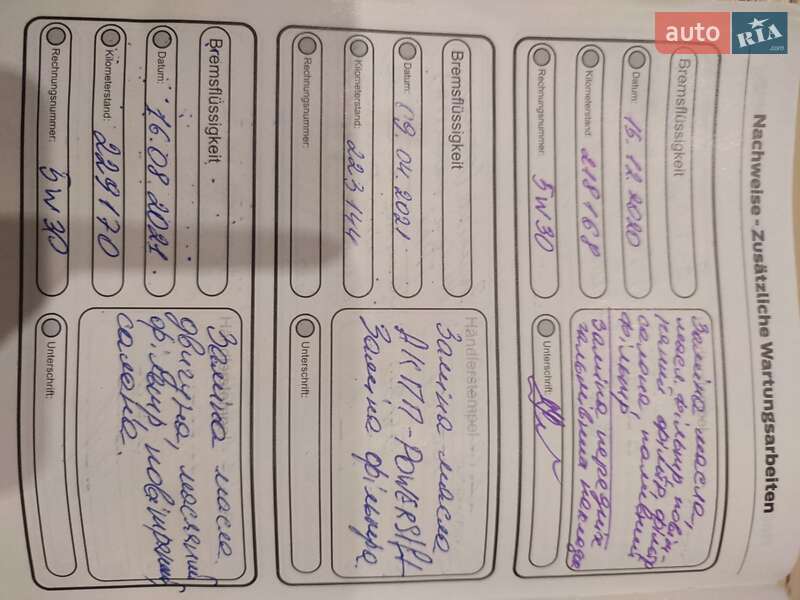 auto RIA.com
Nachweise - Zusätzliche Wartungsarbeiten
Bremsflüssigkeit
Datum: 15.12.2020
Kilometerstand: 218168
Rechnungsnummer: 5W30
Заміна масла,
масл. фільтр, повіт-
ряний фільтр, фільтр
салона, паливний
фільтр
Заміна передніх
гальмівних колодок
Unterschrift:
Bremsflüssigkeit
Datum: 09.04.2021
Kilometerstand: 223144
Rechnungsnummer:
Händlerstempel
Заміна масла
АКПП-POWERSIFt
Заміна фільтра
Unterschrift:
Bremsflüssigkeit
Datum: 16.08.2021.
Kilometerstand: 229170
Rechnungsnummer: 5W30
Заміна масла
двигуна, масляний
фільтр повітряний
салона.
Unterschrift: